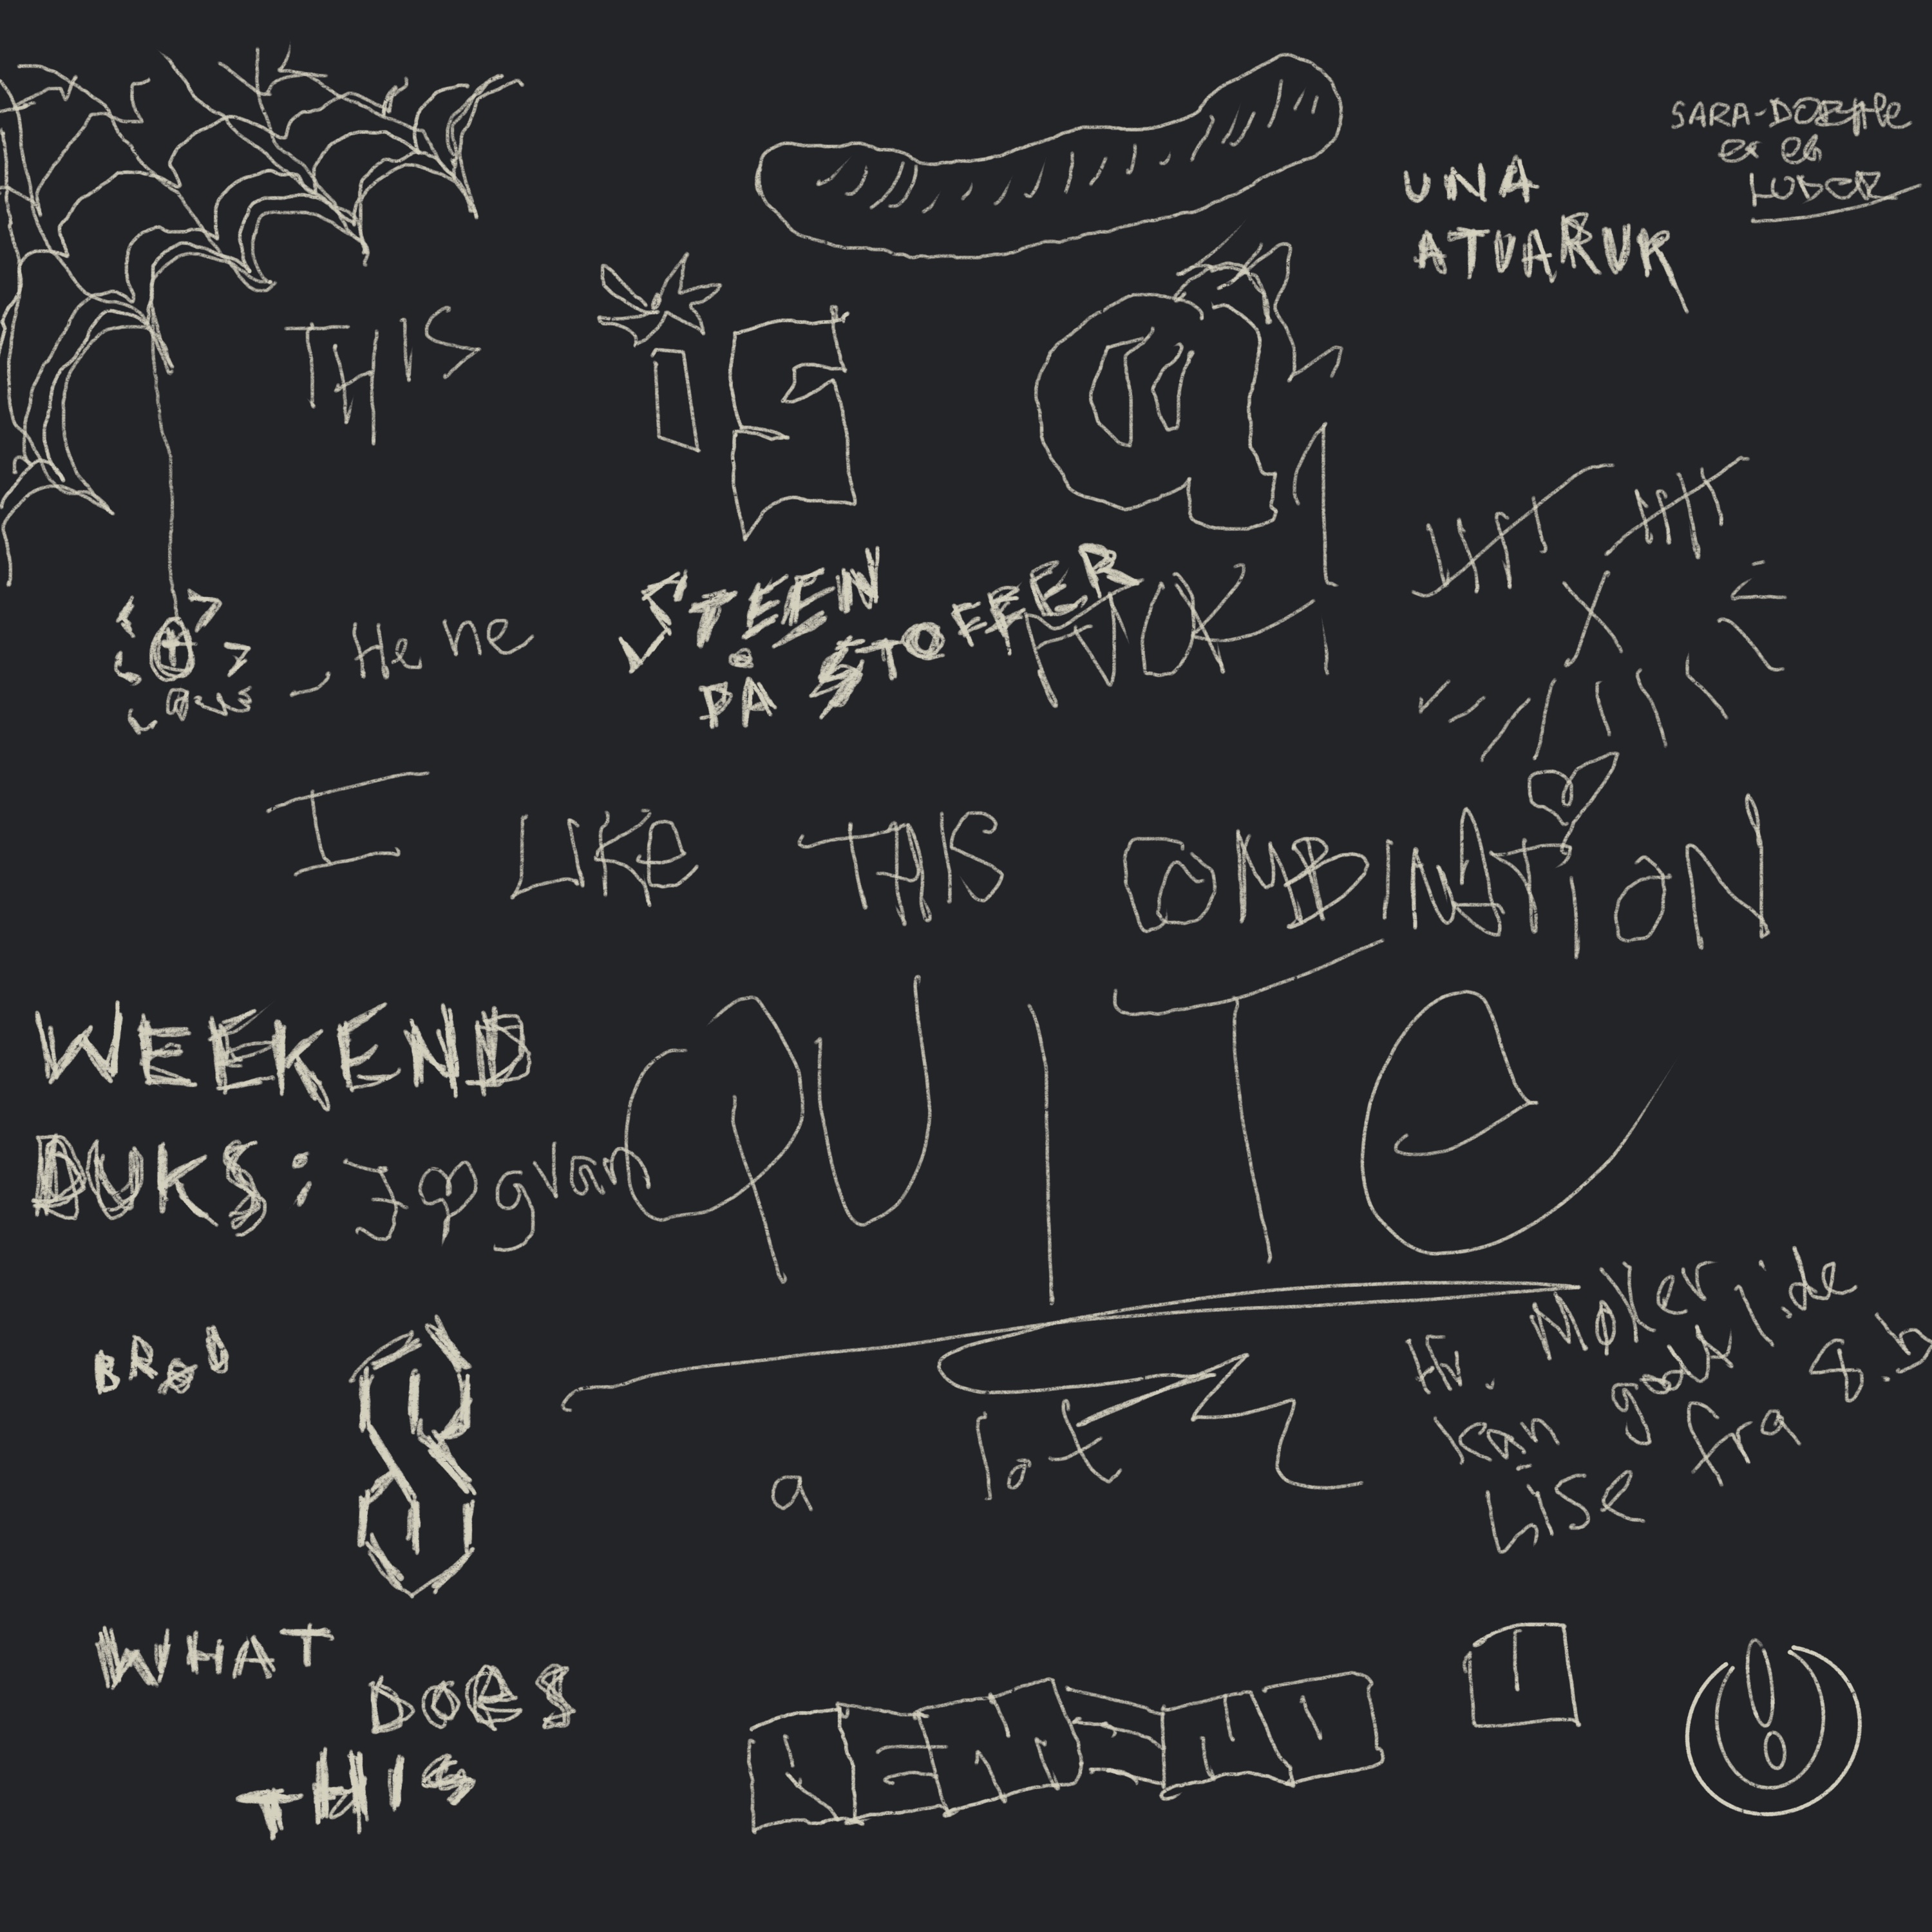 SARA-DORTHE
er en
LUDER
UNA
ATUARUK
THIS is a
STEEN
PÅ STOFFER
FUCK
He he
I LIKE THIS COMBINATION
WEEKEND
DUKS:
QUITE
a lot
BRAD
Hr. Møller
kan godt lide
Lise fra 8.b
WHAT
DOES
THIS